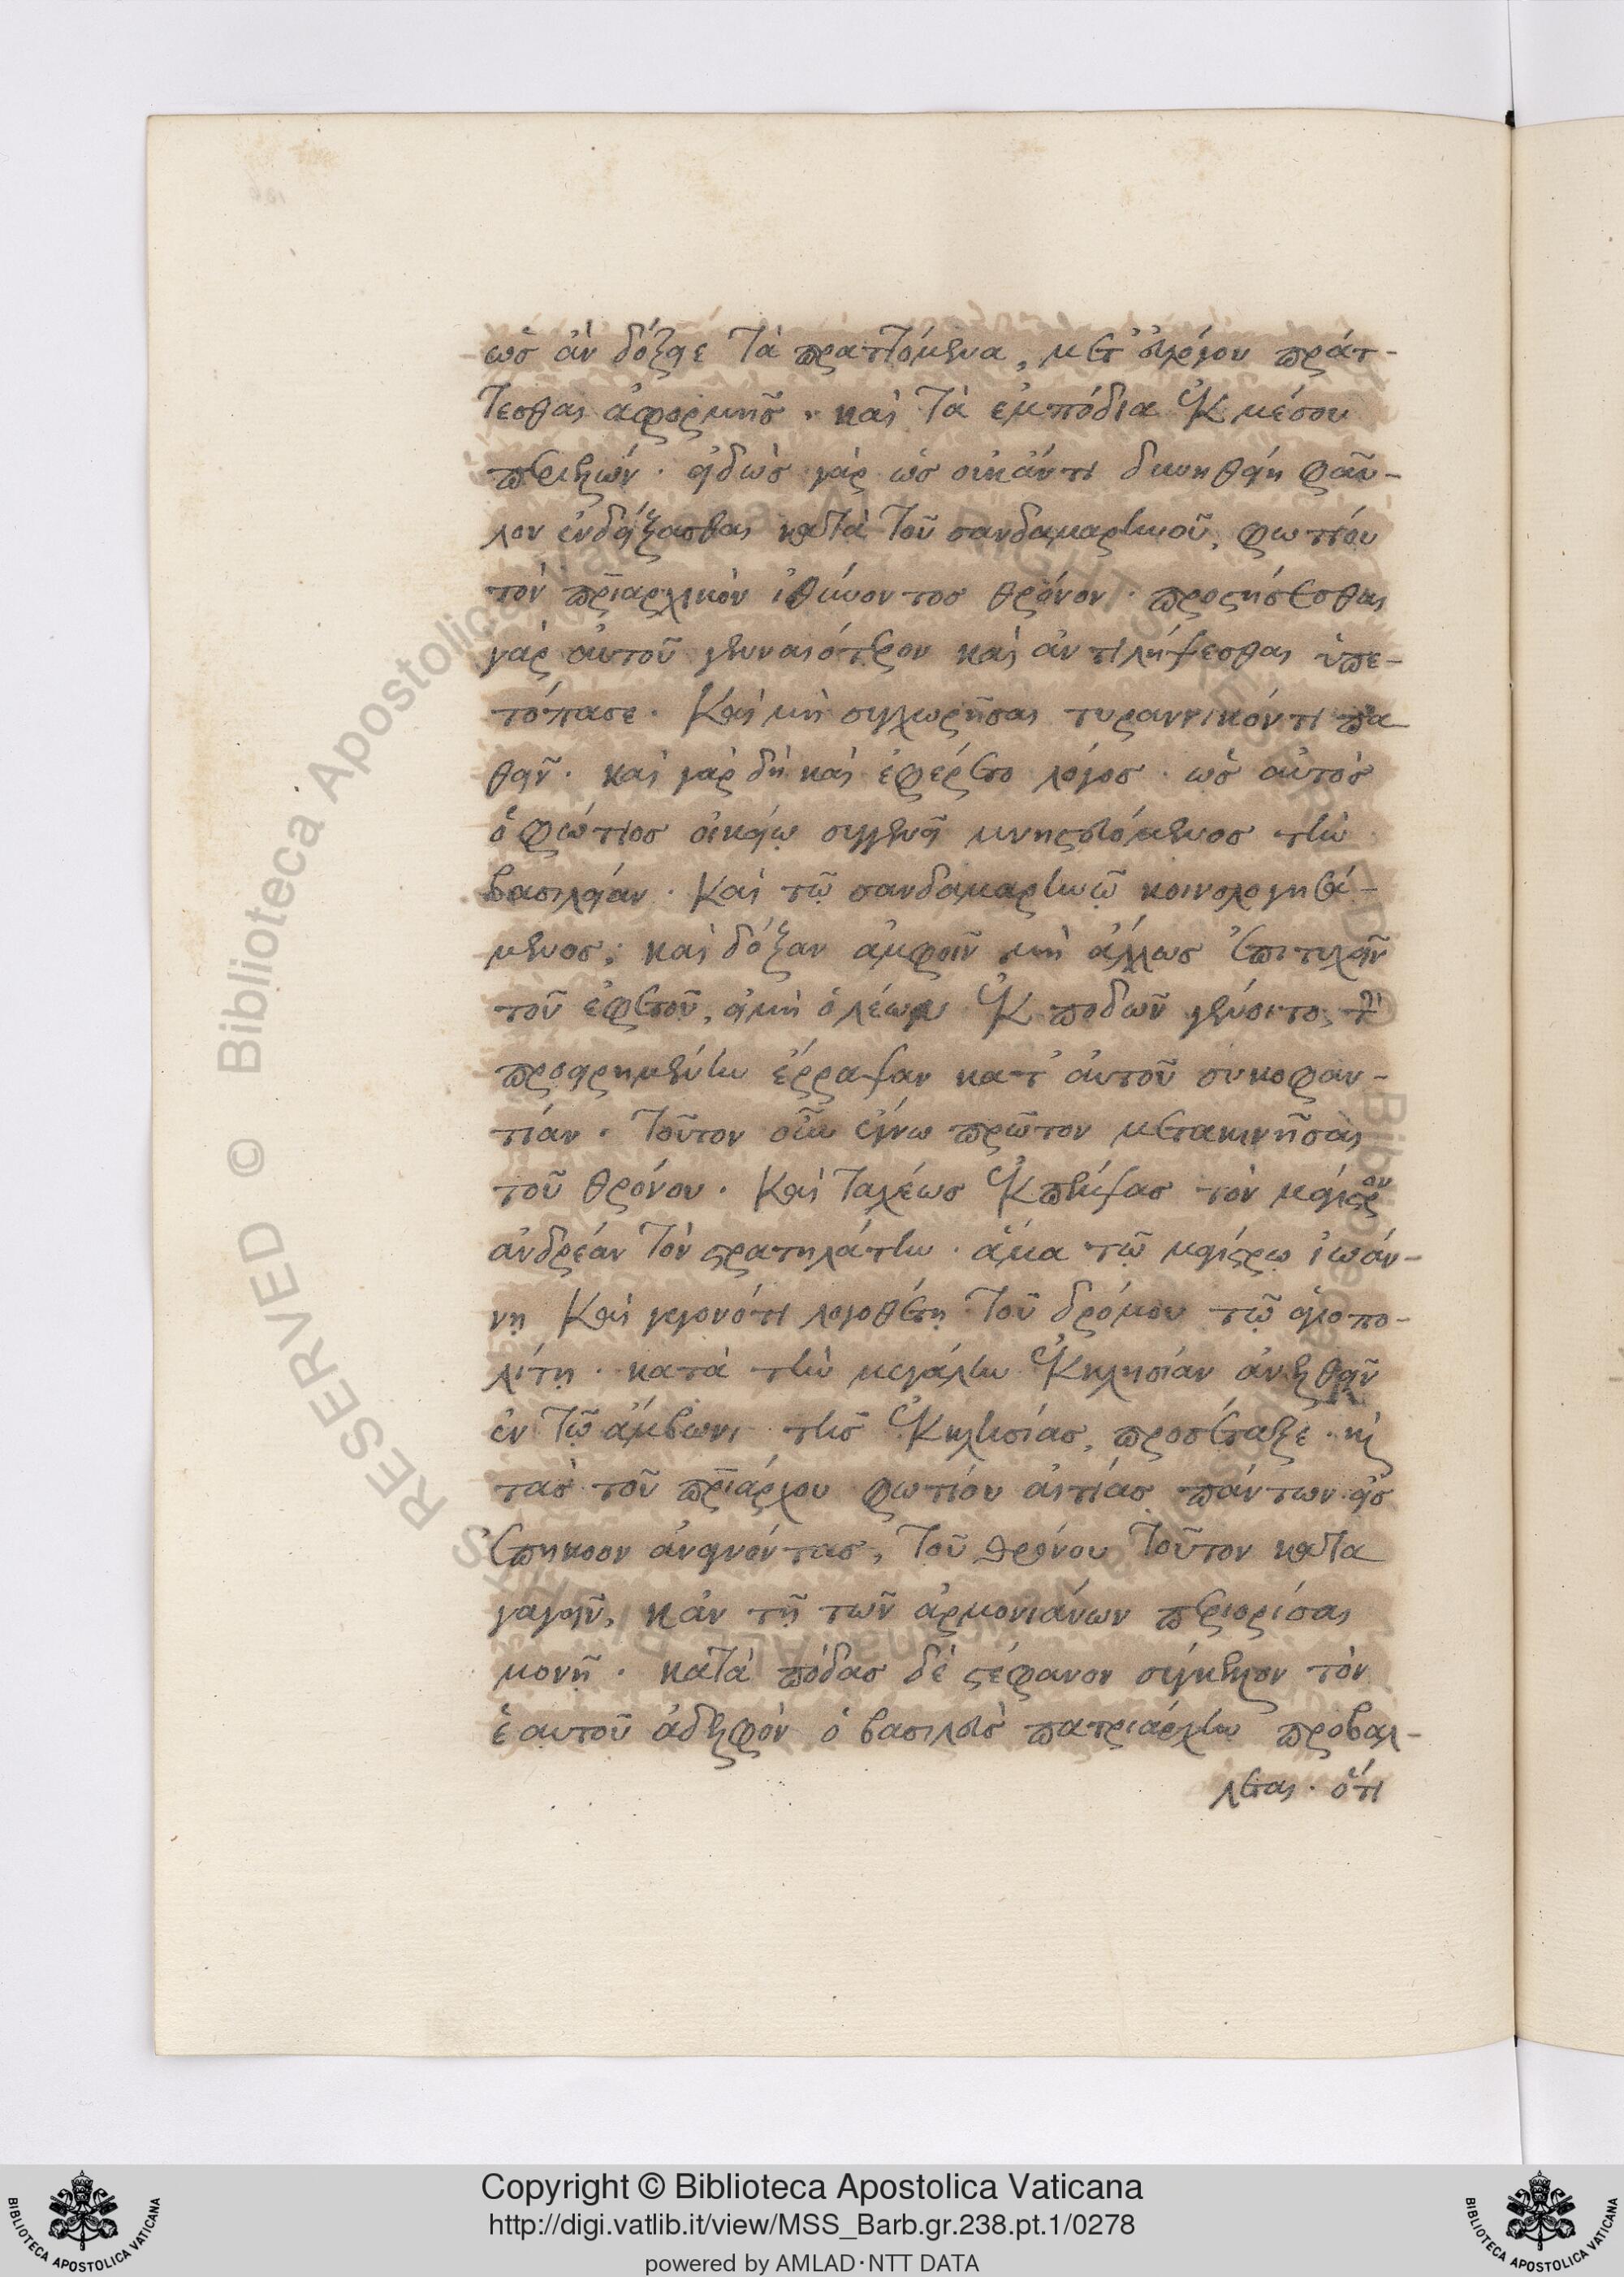 ὡς ἂν δόξῃε τὰ πραττόμενα, μετ' εὐλόγου πράτ-
τεσθαι ἀφορμῆς· καὶ τὰ ἐμπόδια ἐκ μέσου
περιελών· εἰδὼς γὰρ ὡς οὐκ ἄν τι δυνηθείη φαῦ-
λον ἐνδείξασθαι κατὰ τοῦ σανδαμαρηνοῦ, φωτίου
τὸν πριαρχικὸν ἰθύνοντος θρόνον· προστήσεσθαι
γὰρ αὐτοῦ γενναιότερον καὶ ἀντιλήψεσθαι ὑπε-
τόπασε. Καὶ μὴ συγχωρῆσαι τυραννικόν τι πα
θεῖν· καὶ γὰρ δὴ καὶ ἐφέρετο λόγος· ὡς αὐτὸς
ὁ φώτιος οἰκείῳ συγγενεῖ μνηστευόμενος τὴν
βασιλείαν. Καὶ τῷ σανδαμαρηνῷ κοινολογησά-
μενος· καὶ δόξαν ἀμφοῖν μὴ ἄλλως ἐπιτυχεῖν
τοῦ ἐφετοῦ, εἰ μὴ ὁ λέων ἐκ ποδῶν γένοιτο, τὴν
προειρημένην ἔρραψαν κατ' αὐτοῦ συκοφαν-
τίαν. Τοῦτον οὖν ἔγνω πρῶτον μετακινῆσαι
τοῦ θρόνου. Καὶ ταχέως ἐκπέμψας τὸν μάγιστρον
ἀνδρέαν τὸν στρατηλάτην· ἅμα τῷ μαγίστρῳ ἰωάν-
νῃ Καὶ γεγονότι λογοθέτῃ τοῦ δρόμου τῷ ἁγιοπο-
λίτῃ· κατὰ τὴν μεγάλην ἐκκλησίαν ἀνελθεῖν
ἐν τῷ ἄμβωνι τῆς ἐκκλησίας, προσέταξε· καὶ
τὰς τοῦ πριάρχου φωτίου αἰτίας πάντων εἰς
ἐπήκοον ἀνειπόντας, τοῦ θρόνου τοῦτον κατα
γαγεῖν, κἀν τῇ τῶν ἁρμονιάνων περιορίσαι
μονῇ. κατὰ πόδας δὲ στέφανον σύγκελλον τὸν
ἑαυτοῦ ἀδελφὸν ὁ βασιλεὺς πατριάρχην προβάλ-
λεται. ὅτι
Copyright © Biblioteca Apostolica Vaticana
http://digi.vatlib.it/view/MSS_Barb.gr.238.pt.1/0278
powered by AMLAD·NTT DATA